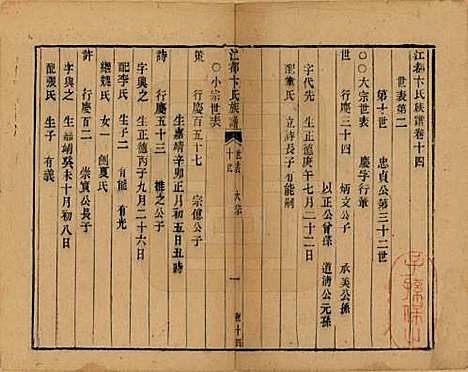 江都卞氏族譜卷十四
世表第二
第十世　忠貞公第三十二世
○○大宗世表　慶字行輩
世　行慶三十四　炳文公子　承美公孫
以正公曾孫　道清公元孫
字代先　生正德庚午七月二十二日
配葉氏　立詩長子有能嗣
江都卞氏族譜　世表　大宗　十世　一　卷十四
○小宗世表
策　行慶百五十七　宗傳公子
生嘉靖辛卯正月初五日丑時
詩　行慶五十三　椎之公子
字興之　生正德丙子九月二十六日
配李氏　生子二　有能　有光
繼魏氏　女一　創夏氏
許　行慶百二　崇實公長子
字與之　生嘉靖癸未十月初八日
配張氏　生子　有議